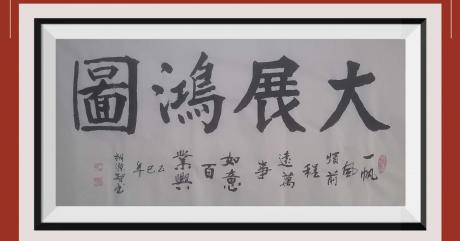 大展鴻圖
一帆
風
順前
程
遠萬
事
如意
百
業興
乙巳
年